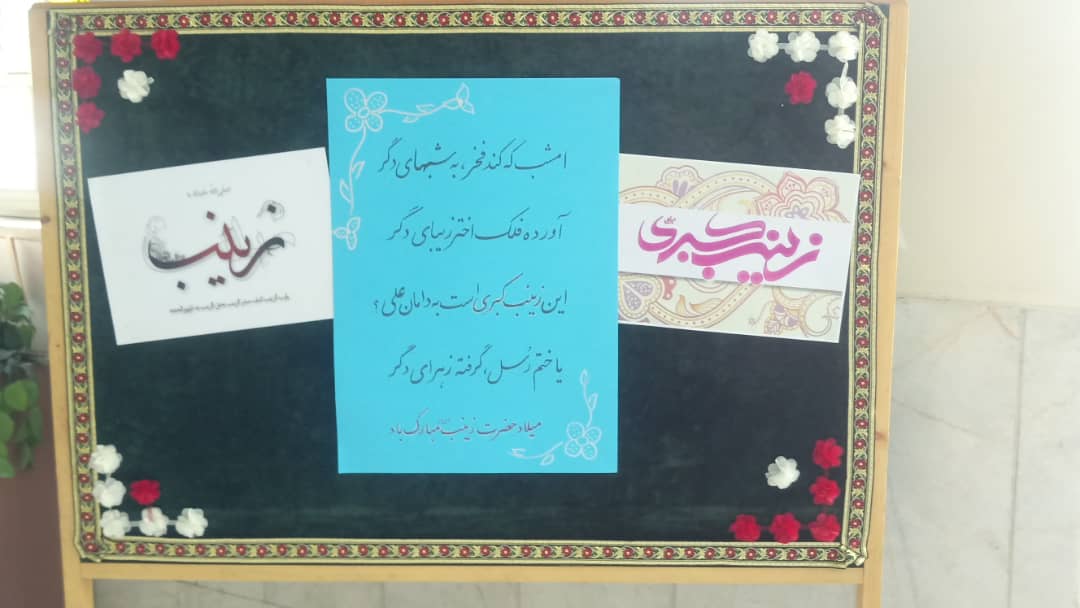 امشب که کند فخر، به شبهای دگر
آورده فلک اختر زیبای دگر
این زینب کبری است به دامان علی؟
یا ختم رُسل، گرفته زهرای دگر
میلاد حضرت زینب مبارک باد
زینب کبری
زینب